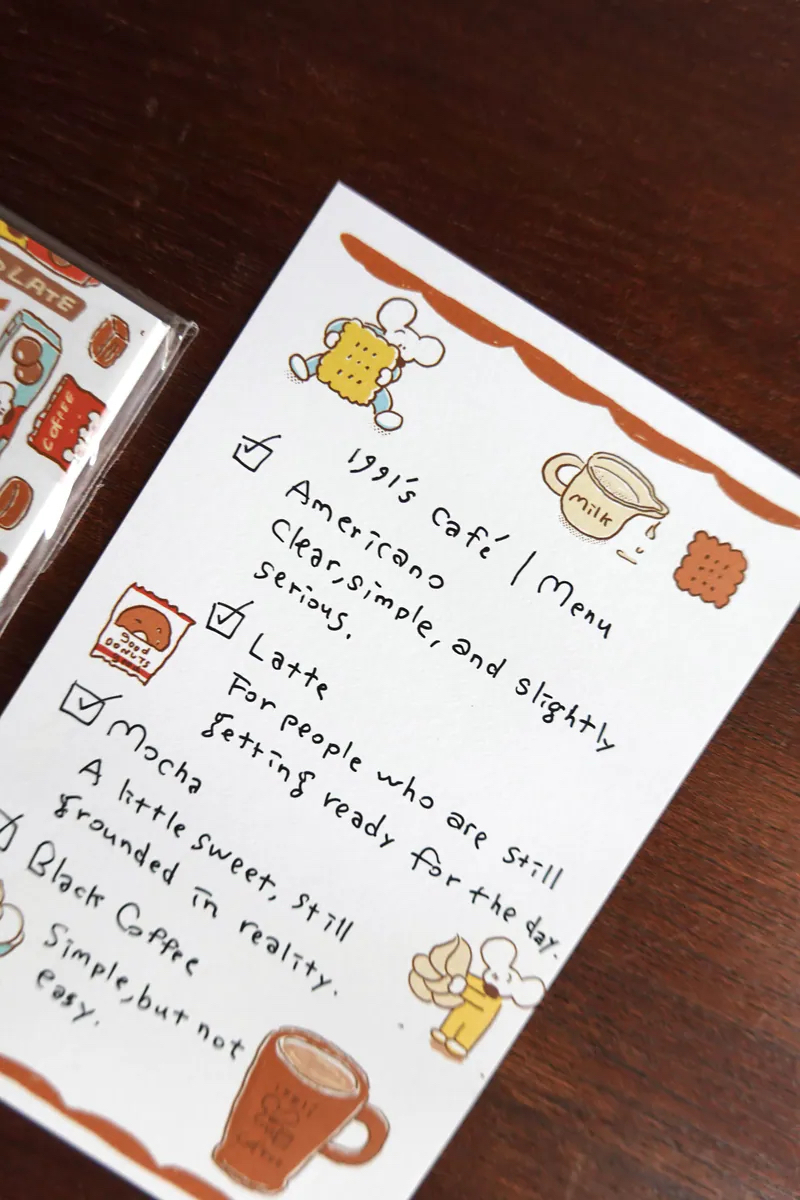 1991's Café | Menu
Americano
Clear, simple, and slightly
serious.
Latte
For people who are still
getting ready for the day.
Mocha
A little sweet, still
grounded in reality.
Black Coffee
Simple, but not
easy.
milk
good
DONUTS
good
OLATE
Coffee